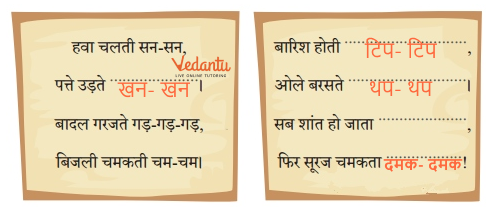 हवा चलती सन-सन,
Vedantu
LIVE ONLINE TUTORING
पत्ते उड़ते खन- खन ।
बादल गरजते गड़-गड़-गड़,
बिजली चमकती चम-चम।
बारिश होती टिप- टिप ,
ओले बरसते थप- थप ।
सब शांत हो जाता ....................,
फिर सूरज चमकता दमक- दमक!